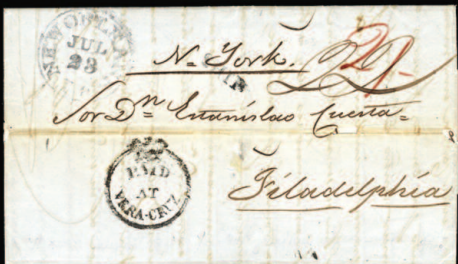 NEW ORLEANS
JUL
23
N. York.
2/-
Sor Dn Estanislao Cuesta=
PAID
AT
VERA-CRUZ
Filadelphia